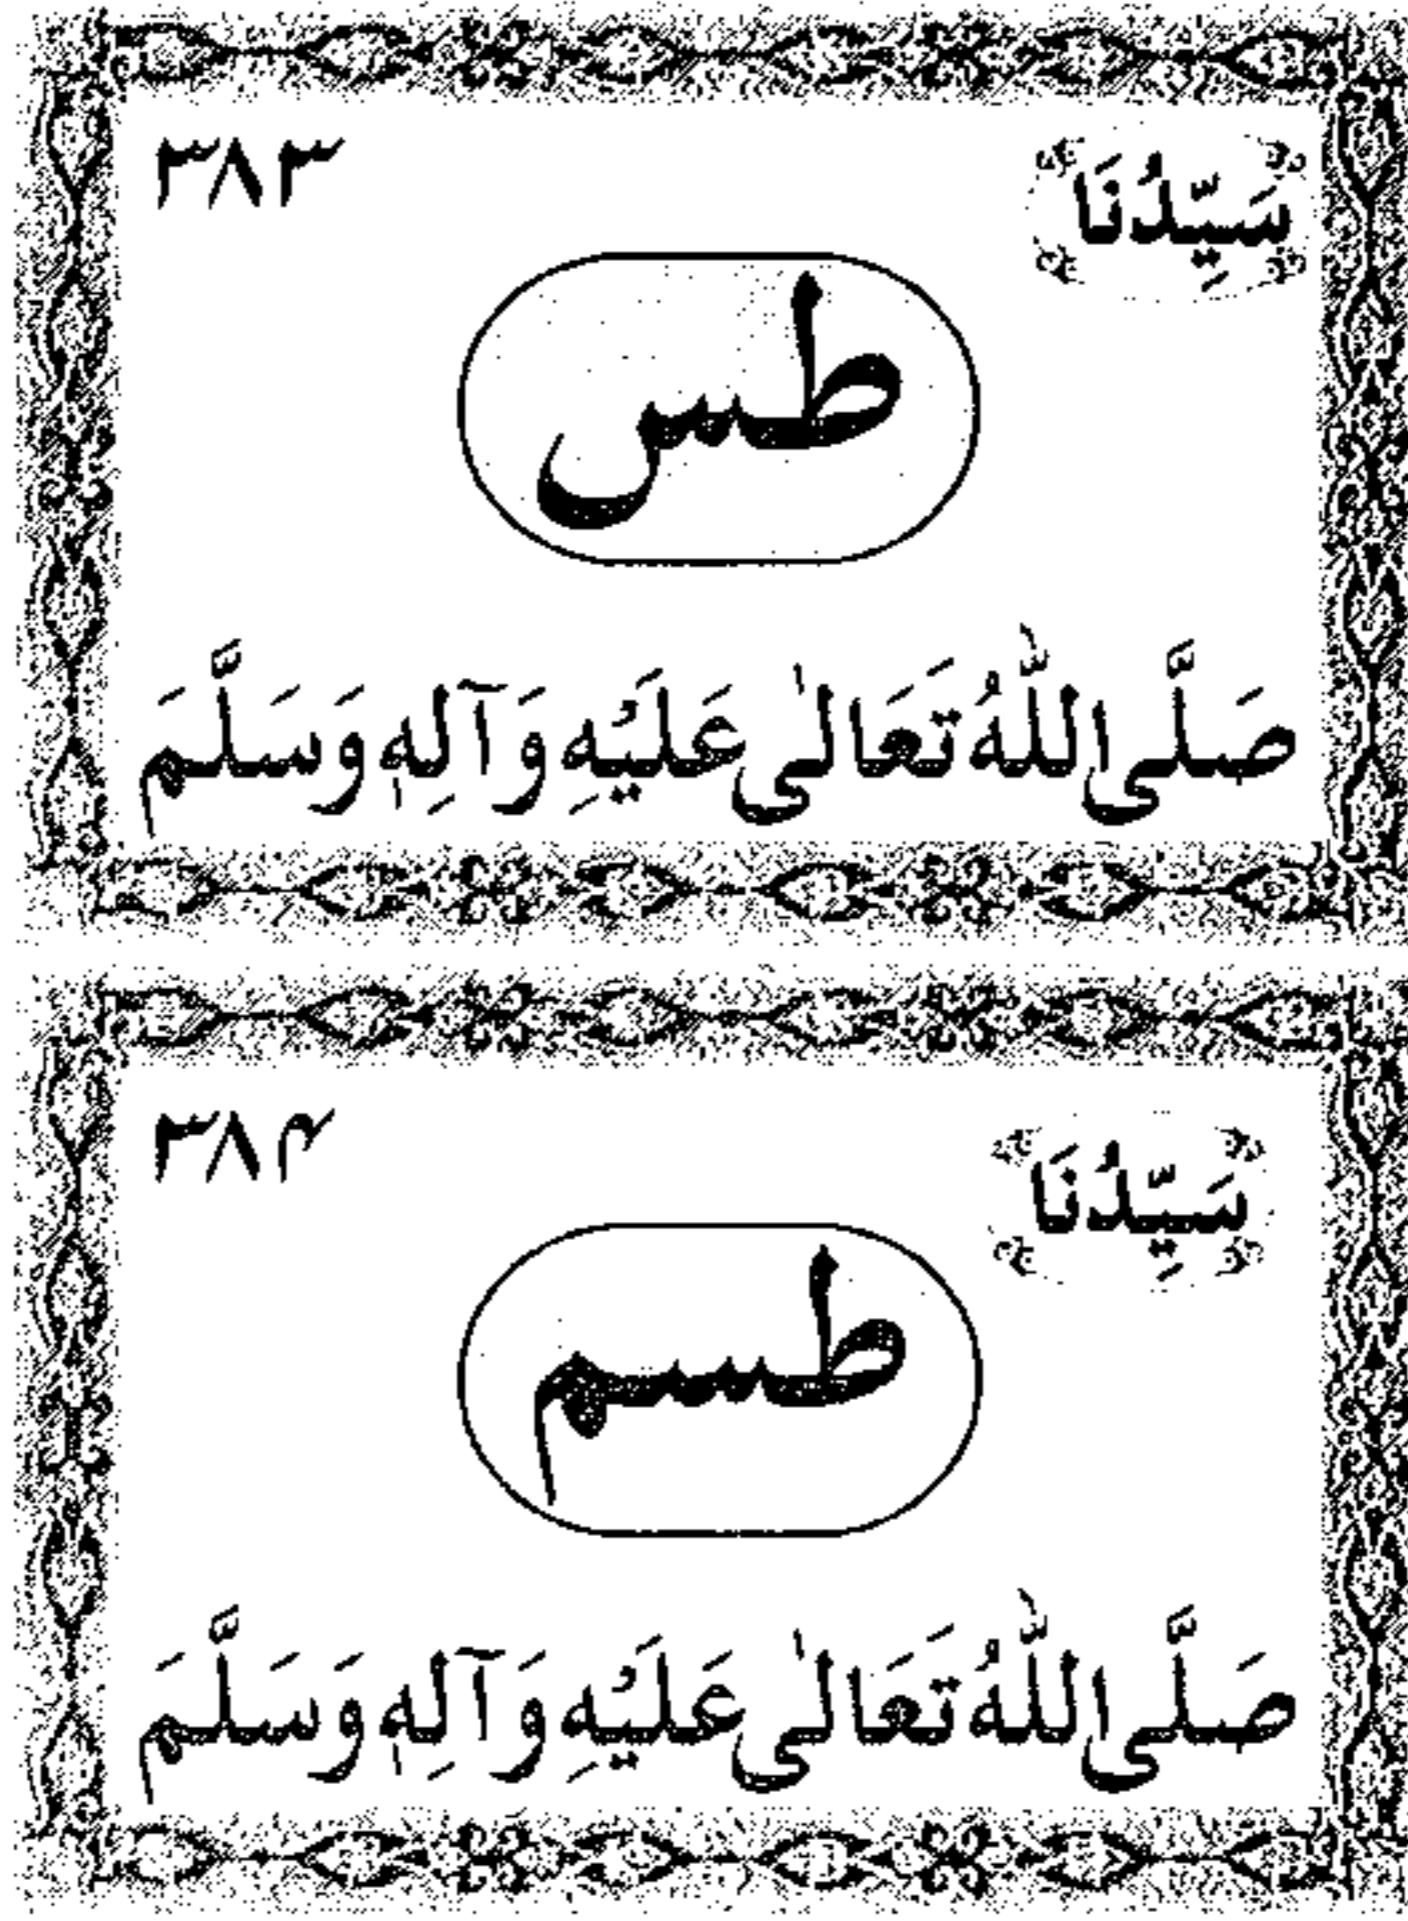 سَيِّدُنَا ۳۸۳
طس
صَلَّى اللّٰهُ تَعَالٰى عَلَيْهِ وَآلِهٖ وَسَلَّمَ
سَيِّدُنَا ۳۸۴
طسم
صَلَّى اللّٰهُ تَعَالٰى عَلَيْهِ وَآلِهٖ وَسَلَّمَ